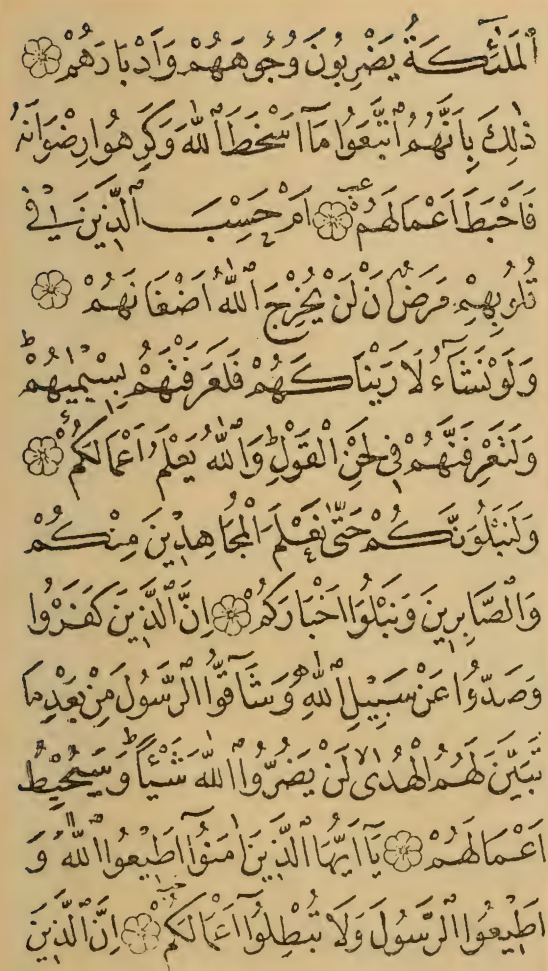 ٱلْمَلٰٓئِكَةُ يَضْرِبُونَ وُجُوهَهُمْ وَاَدْبَارَهُمْ ۝
ذٰلِكَ بِاَنَّهُمُ ٱتَّبَعُوا مَآ اَسْخَطَ ٱللّٰهَ وَكَرِهُوا رِضْوَانَهُ
فَاَحْبَطَ اَعْمَالَهُمْ ۝ اَمْ حَسِبَ ٱلَّذِينَ فِى
قُلُوبِهِمْ مَرَضٌ اَنْ لَنْ يُخْرِجَ ٱللّٰهُ اَضْغَانَهُمْ ۝
وَلَوْ نَشَآءُ لَاَرَيْنَاكَهُمْ فَلَعَرَفْتَهُمْ بِسِيْمٰيهُمْ ط
وَلَتَعْرِفَنَّهُمْ فِى لَحْنِ ٱلْقَوْلِ ط وَٱللّٰهُ يَعْلَمُ اَعْمَالَكُمْ ۝
وَلَنَبْلُوَنَّكُمْ حَتّٰى نَعْلَمَ ٱلْمُجَاهِدِينَ مِنْكُمْ
وَٱلصَّابِرِينَ وَنَبْلُوَا اَخْبَارَكُمْ ۝ اِنَّ ٱلَّذِينَ كَفَرُوا
وَصَدُّوا عَنْ سَبِيْلِ ٱللّٰهِ وَشَآقُّوا ٱلرَّسُولَ مِنْ بَعْدِ مَا
تَبَيَّنَ لَهُمُ ٱلْهُدٰى لا لَنْ يَضُرُّوا ٱللّٰهَ شَيْـًٔا ط وَسَيُحْبِطُ
اَعْمَالَهُمْ ۝ يَآ اَيُّهَا ٱلَّذِينَ اٰمَنُوٓا اَطِيْعُوا ٱللّٰهَ وَ
اَطِيْعُوا ٱلرَّسُولَ وَلَا تُبْطِلُوٓا اَعْمَالَكُمْ ۝ اِنَّ ٱلَّذِينَ